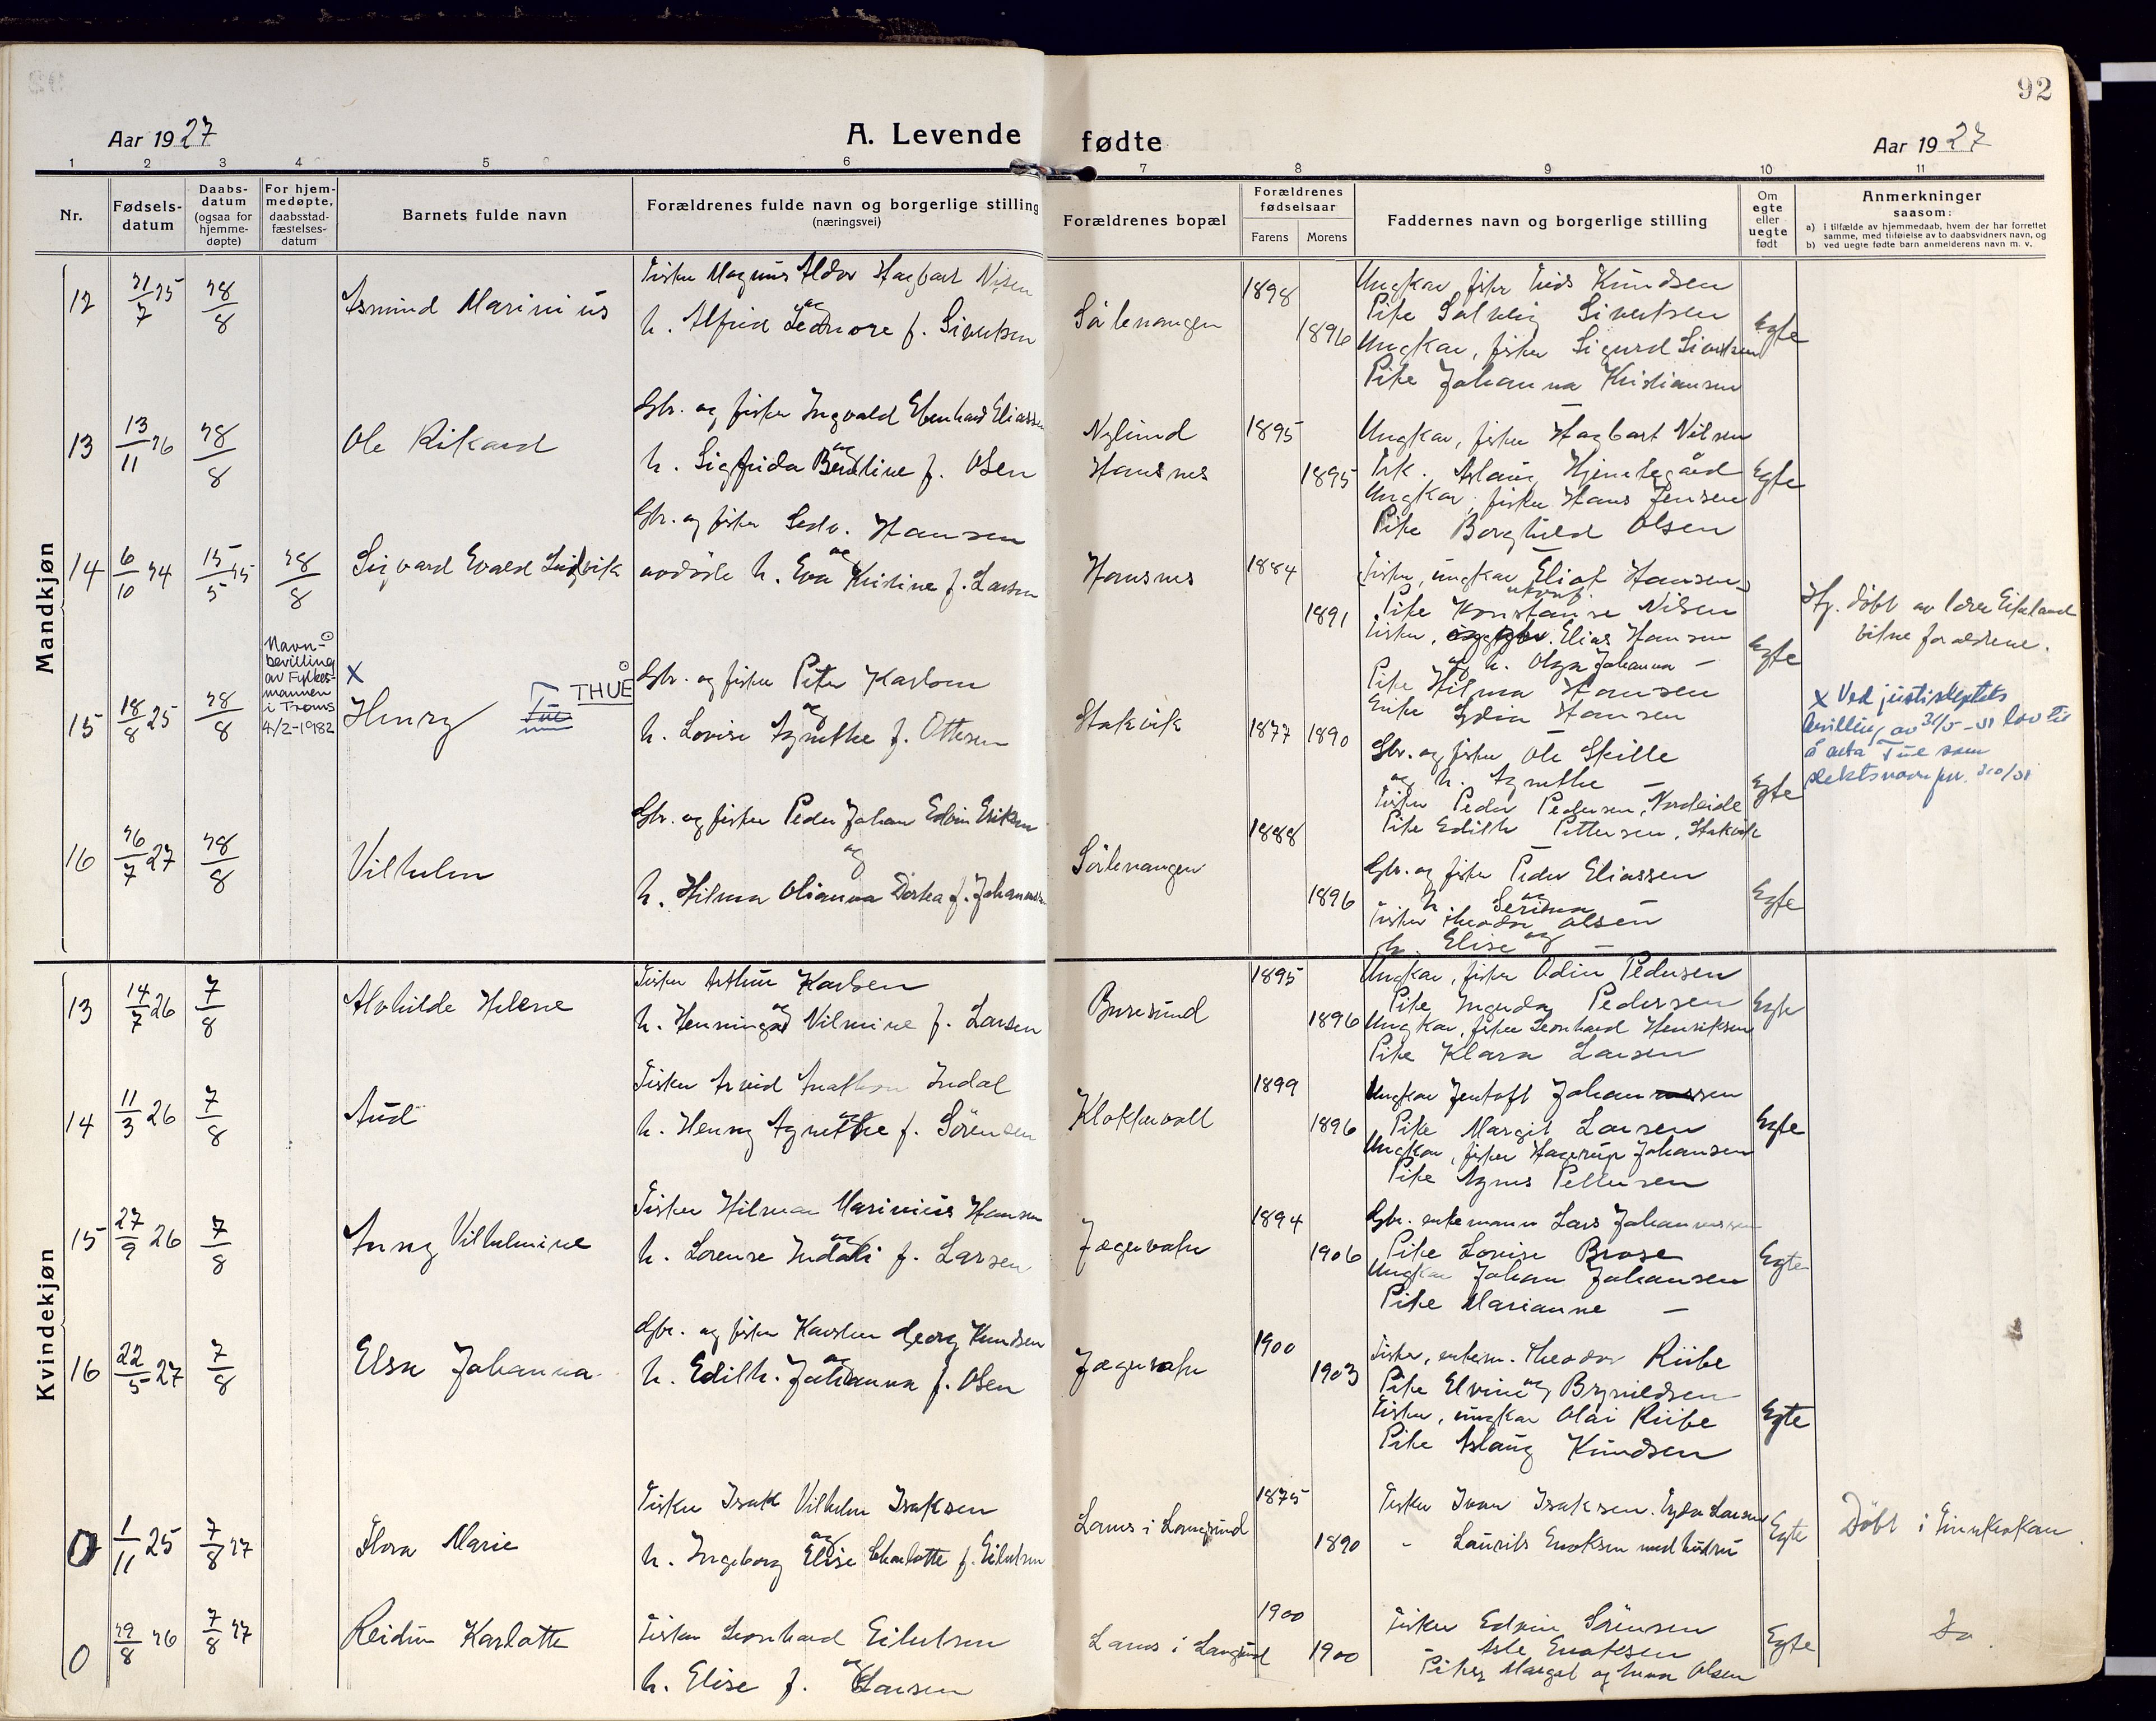 92
Aar 1927
A. Levende fødte
Aar 1927
1 2 3 4 5 6 7 8 9 10 11
Nr.
Fødsels-
datum
Daabs-
datum
(ogsaa for
hjemme-
døpte)
For hjem-
medøpte,
daabsstad-
fæstelses-
datum
Barnets fulde navn
Forældrenes fulde navn og borgerlige stilling
(næringsvei)
Forældrenes bopæl
Forældrenes
fødselsaar
Farens Morens
Faddernes navn og borgerlige stilling
Om
egte
eller
uegte
født
Anmerkninger
saasom:
a) i tilfælde av hjemmedaab, hvem der har forrettet
samme, med tilføielse av to daabsvidners navn, og
b) ved uegte fødte barn anmelderens navn m. v.
Mandkjøn
12 21/7 25 28/8 Asmund Marinius
Fisker Magnus Aldor Hagbart Nilsen
og
h. Alfrid Leonore f. Sivertsen
Sørlenangen
1898 1896
Ungkar fisker Knudsen
Pike Solveig Sivertsen
Ungkar, fisker Sigurd Sivertsen
Pike Johanna Kristiansen
Egte
13 13/11 26 28/8 Ole Rikard
Gbr. og fisker Ingvald Edenhard Eliassen
og
h. Sigfrida Bentine f. Olsen
Nylund
Hansnes
1895 1895
Ungkar, fisker Hagbart Nilsen
Frk. Aslaug Hjemtegård
Ungkar, fisker Hans Jensen
Pike Borghild Olsen
Egte
14 6/10 24 15/5 25 28/8 Sigvard Evald Ludvik
Gbr. og fisker Hansen
og
avdøde h. Eva Kristine f. Larsen
Hansnes
1884 1891
Fisker, ungkar Eliaf Hansen
Pike Konstanse Nilsen
Fisker, Elias Hansen
og h. Olga Johanna –
Pike Hilma Hansen
Enke Lydia Hansen
Egte
Hj. døbt av lærer Eikeland
vitne forældrene.
Navn-
bevilling
av Fylkes-
mannen
i Troms
4/2-1982
X
15 18/8 25 28/8 Henry Tue THUE
Gbr. og fisker Peter Karlsen
og
h. Lovise Agnethe f. Ottesen
Stakvik
1877 1890
Gbr. og fisker Ole Skille
og h. Agnethe –
Fisker Peder Pedersen, Nordeide
Pike Edith Pettersen, Stakvik
Egte
X Ved justisdeptets
bevilling av 31/5-51 lov til
å anta Tue som
slektsnavn
16 26/7 27 28/8 Vilhelm
Gbr. og fisker Peder Johan Edvin Eriksen
og
h. Hilma Olianna Dortea f. Johannesen
Sørlenangen
1888 1896
Gbr. og fisker Peder Eliassen
og
h. Serina –
Fisker Theodor Olsen
og
h. Elise –
Egte
Kvindekjøn
13 14/7 26 7/8 Alvhilde Helene
Fisker Arthur Karlsen
og
h. Henninga Vilmine f. Larsen
Buresund
1895 1896
Ungkar, fisker Odin Pedersen
Pike Ingerda Pedersen
Ungkar, fisker Leonhard Henriksen
Pike Klara Larsen
Egte
14 11/3 26 7/8 Aud
Fisker Arvid Indal
og
h. Henny Agnethe f. Sørensen
Klokkervoll
1899 1896
Ungkar Jentoft Johansen
Pike Margit Larsen
Ungkar, fisker Hagerup Johansen
Pike Agnes Pettersen
Egte
15 27/9 26 7/8 Anny Vilhelmine
Fisker Hilmar Marinius Hansen
og
h. Lorense Indali f. Larsen
Jægervatn
1894 1906
Gbr. enkemann Lars Johannessen
Pike Lovise Brose
Ungkar Johan Johansen
Pike Marianne –
Egte
16 22/5 27 7/8 Elsa Johanna
Gbr. og fisker Karsten Georg Knudsen
og
h. Edith Johanna f. Olsen
Jægervatn
1900 1903
Fisker, enkem. Theodor Riibe
Pike Elvine Brynildsen
Fisker, ungkar Olai Riibe
Pike Aslaug Knudsen
Egte
0 1/11 25 7/8 27 Flora Marie
Fisker Isak Vilhelm Isaksen
og
h. Ingeborg Elise Charlotte f. Eilertsen
Lanes i Langsund
1875 1890
Fisker Ivar Isaksen. Larsen
" Laurits Enoksen med hustru
Egte
Døbt i Finnkroken
0 29/8 26 7/8 27 Reidun Karlotte
Fisker Leonhard Eilertsen
og
h. Elise f. Larsen
Lanes i Langsund
1900 1900
Fisker Edvin Sørensen
" Asle Enoksen
Piker Margot og Anna Olsen
Egte
Do.